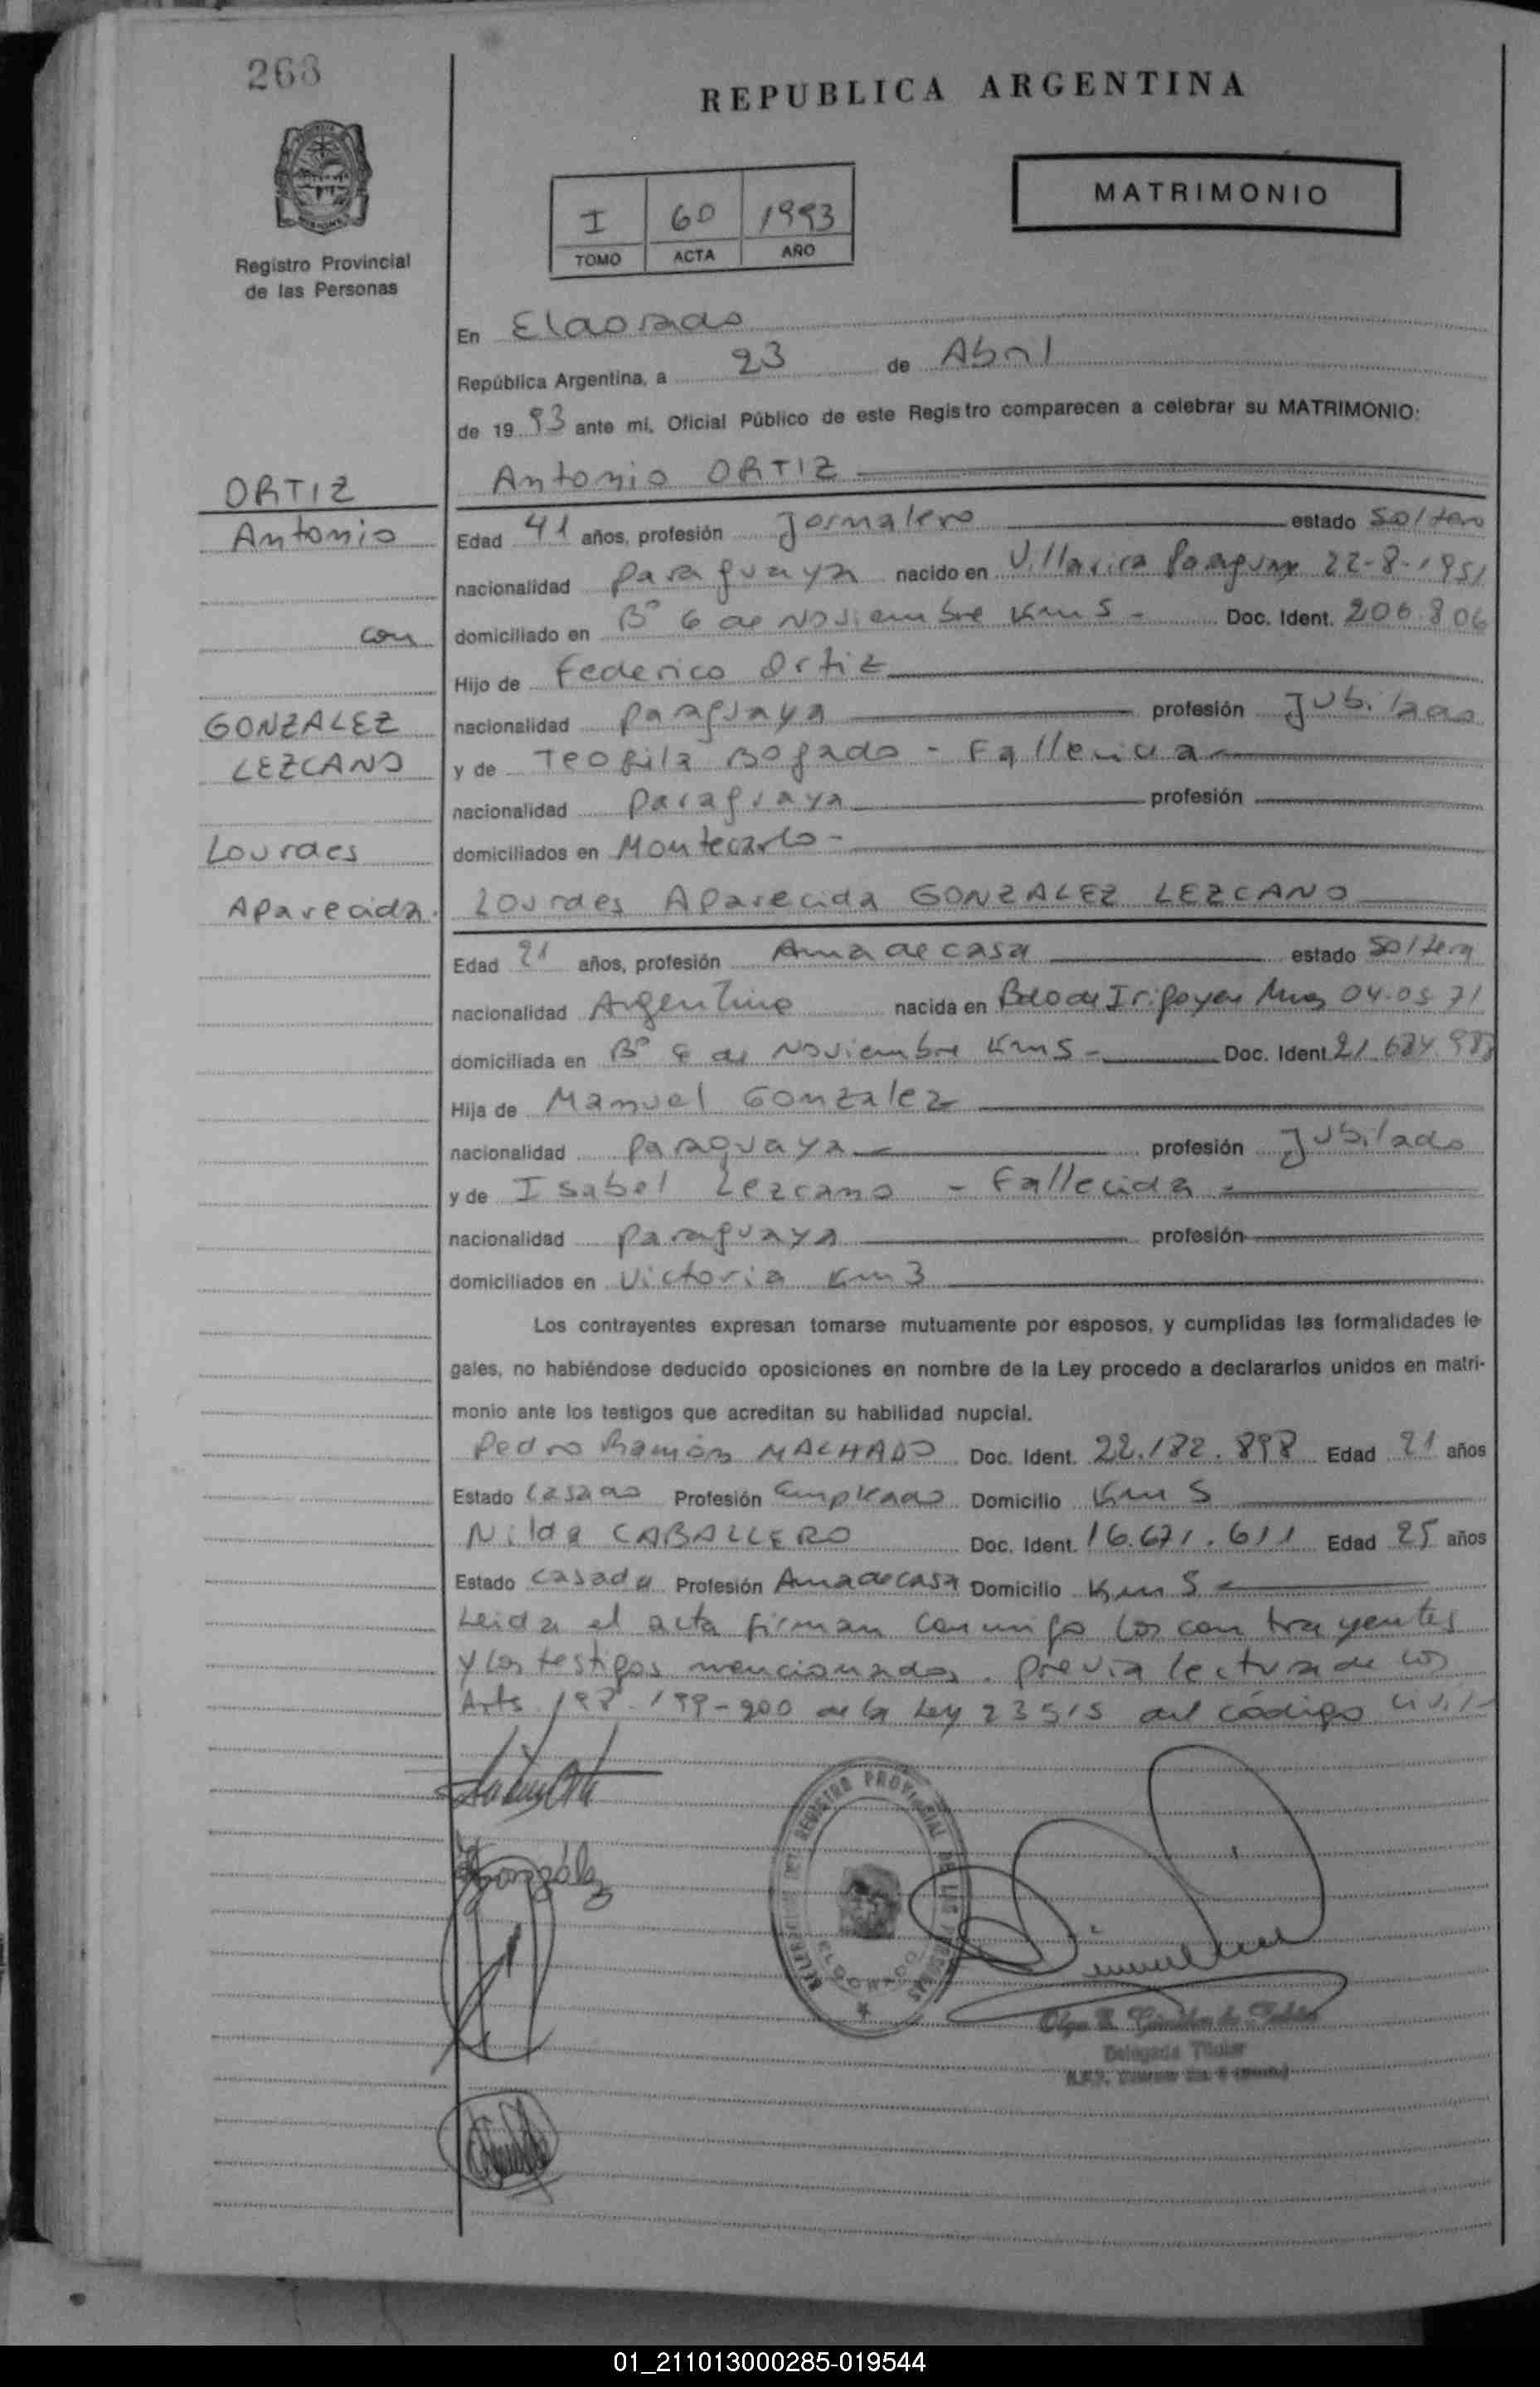 268
REPUBLICA ARGENTINA
MATRIMONIO
I 60 1993
TOMO ACTA AÑO
Registro Provincial
de las Personas
En Eldorado
República Argentina, a 23 de Abril
de 19 93 ante mi, Oficial Público de este Registro comparecen a celebrar su MATRIMONIO:
ORTIZ
Antonio
con
GONZALEZ
LEZCANO
Lourdes
Aparecida.
Antonio ORTIZ
Edad 41 años, profesión Jornalero estado Soltero
nacionalidad paraguaya nacido en Villarica Paraguay 22-8-1951
domiciliado en B° 6 de Noviembre Km 5 - Doc. Ident. 206.806
Hijo de Federico Ortiz
nacionalidad paraguaya profesión Jubilado
y de Teofila Bogado - Fallecida
nacionalidad paraguaya profesión
domiciliados en Montecarlo -
Lourdes Aparecida GONZALEZ LEZCANO
Edad 21 años, profesión Ama de casa estado Soltera
nacionalidad Argentina nacida en Bdo de Irigoyen Mnes 04-05 71
domiciliada en B° 6 de Noviembre Km 5 - Doc. Ident
Hija de Manuel Gonzalez
nacionalidad paraguaya profesión Jubilado
y de Isabel Lezcano - Fallecida
nacionalidad paraguaya profesión
domiciliados en Victoria Km 3
Los contrayentes expresan tomarse mutuamente por esposos, y cumplidas las formalidades le-
gales, no habiéndose deducido oposiciones en nombre de la Ley procedo a declararlos unidos en matri-
monio ante los testigos que acreditan su habilidad nupcial.
Pedro Ramón MACHADO Doc. Ident. 22.182.898 Edad 21 años
Estado Casado Profesión Empleado Domicilio Km 5
Nilda CABALLERO Doc. Ident. 16.671.611 Edad 25 años
Estado Casada Profesión Ama de casa Domicilio Km 5
Leida el acta firman conmigo los contrayentes
y los testigos mencionados. previa lectura de los
Arts 198-199-200 de la Ley 23515 del código civil-
González
REGISTRO PROVINCIAL DE LAS PERSONAS
ELDORADO
Olga
Delegada Titular
01_211013000285-019544